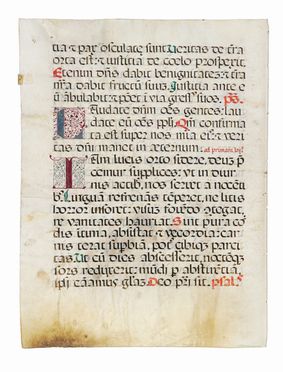 tia et pax osculate sunt Veritas de tr̄ra
orta est: et iustitia de coelo prosperit.
Etenim dn̄s dabit benignitatē: et tr̄ra
nr̄a dabit fructū suū. Justitia ante e
ū ābulabit: et ponet ī via gressꝰ suos. ps.
Laudate dn̄m oēs gentes: lau
date eū oēs ppl̄i. Qm̄ confirma
ta est super nos mīa eiꝰ: et veri
tas dn̄i manet in aeternum. ad primam hyꝰ
Iam lucis orto sidere, deūz p̄
cemur supplices: ut in diur
nis actib, nos servet a nocēti
b. Linguā refrenās tēperet, ne litis
horror insonet: visū fovēdo cōtegat,
ne vanitates hauriat. Sint pura cor
dis ītima, absistat et vecordia: car
nis terat supbiā, potꝰ cibiqꝫ parci
tas. Ut cū dies abscesserit, noctēqꝫ
sors reduxerit: mūdi p abstinētiā,
ipi canamus glāz. Deo p̄ri sit. psal.